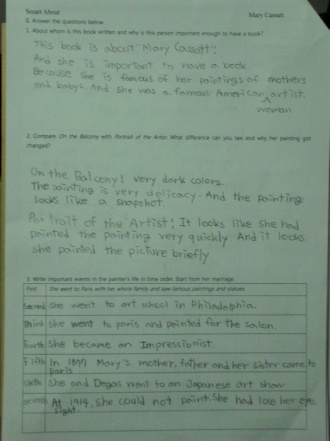 Smart About
Mary Cassatt
E. Answer the questions below.
1. About whom is this book written and why is this person important enough to have a book?
This book is about "Mary Cassatt".
And she is important to have a book
Because she is famous of her paintings of mothers
and babys. And she was a famous American artist.
woman
2. Compare On the Balcony with Portrait of the Artist. What difference can you see and why her painting got
changed?
On the Balcony: very dark colors.
The painting is very delicacy. And the painting
looks like a snapshot.
Portrait of the Artist: It looks like she had
painted the painting very quickly. And it looks
she painted the picture briefly
3. Write important events in the painter's life in time order. Start from her marriage.
First She went to Paris with her whole family and saw famous paintings and statues.
Second She went to art school in Philadelphia.
third She went to paris and painted for the salon.
fourth She became an Impressionist.
fifth In 1877 Mary's mother, father and her sister came to
paris
sixth She and Degas went to an Japanese art show
seventh At 1914, she could not paint. She had lose her eye
sight.